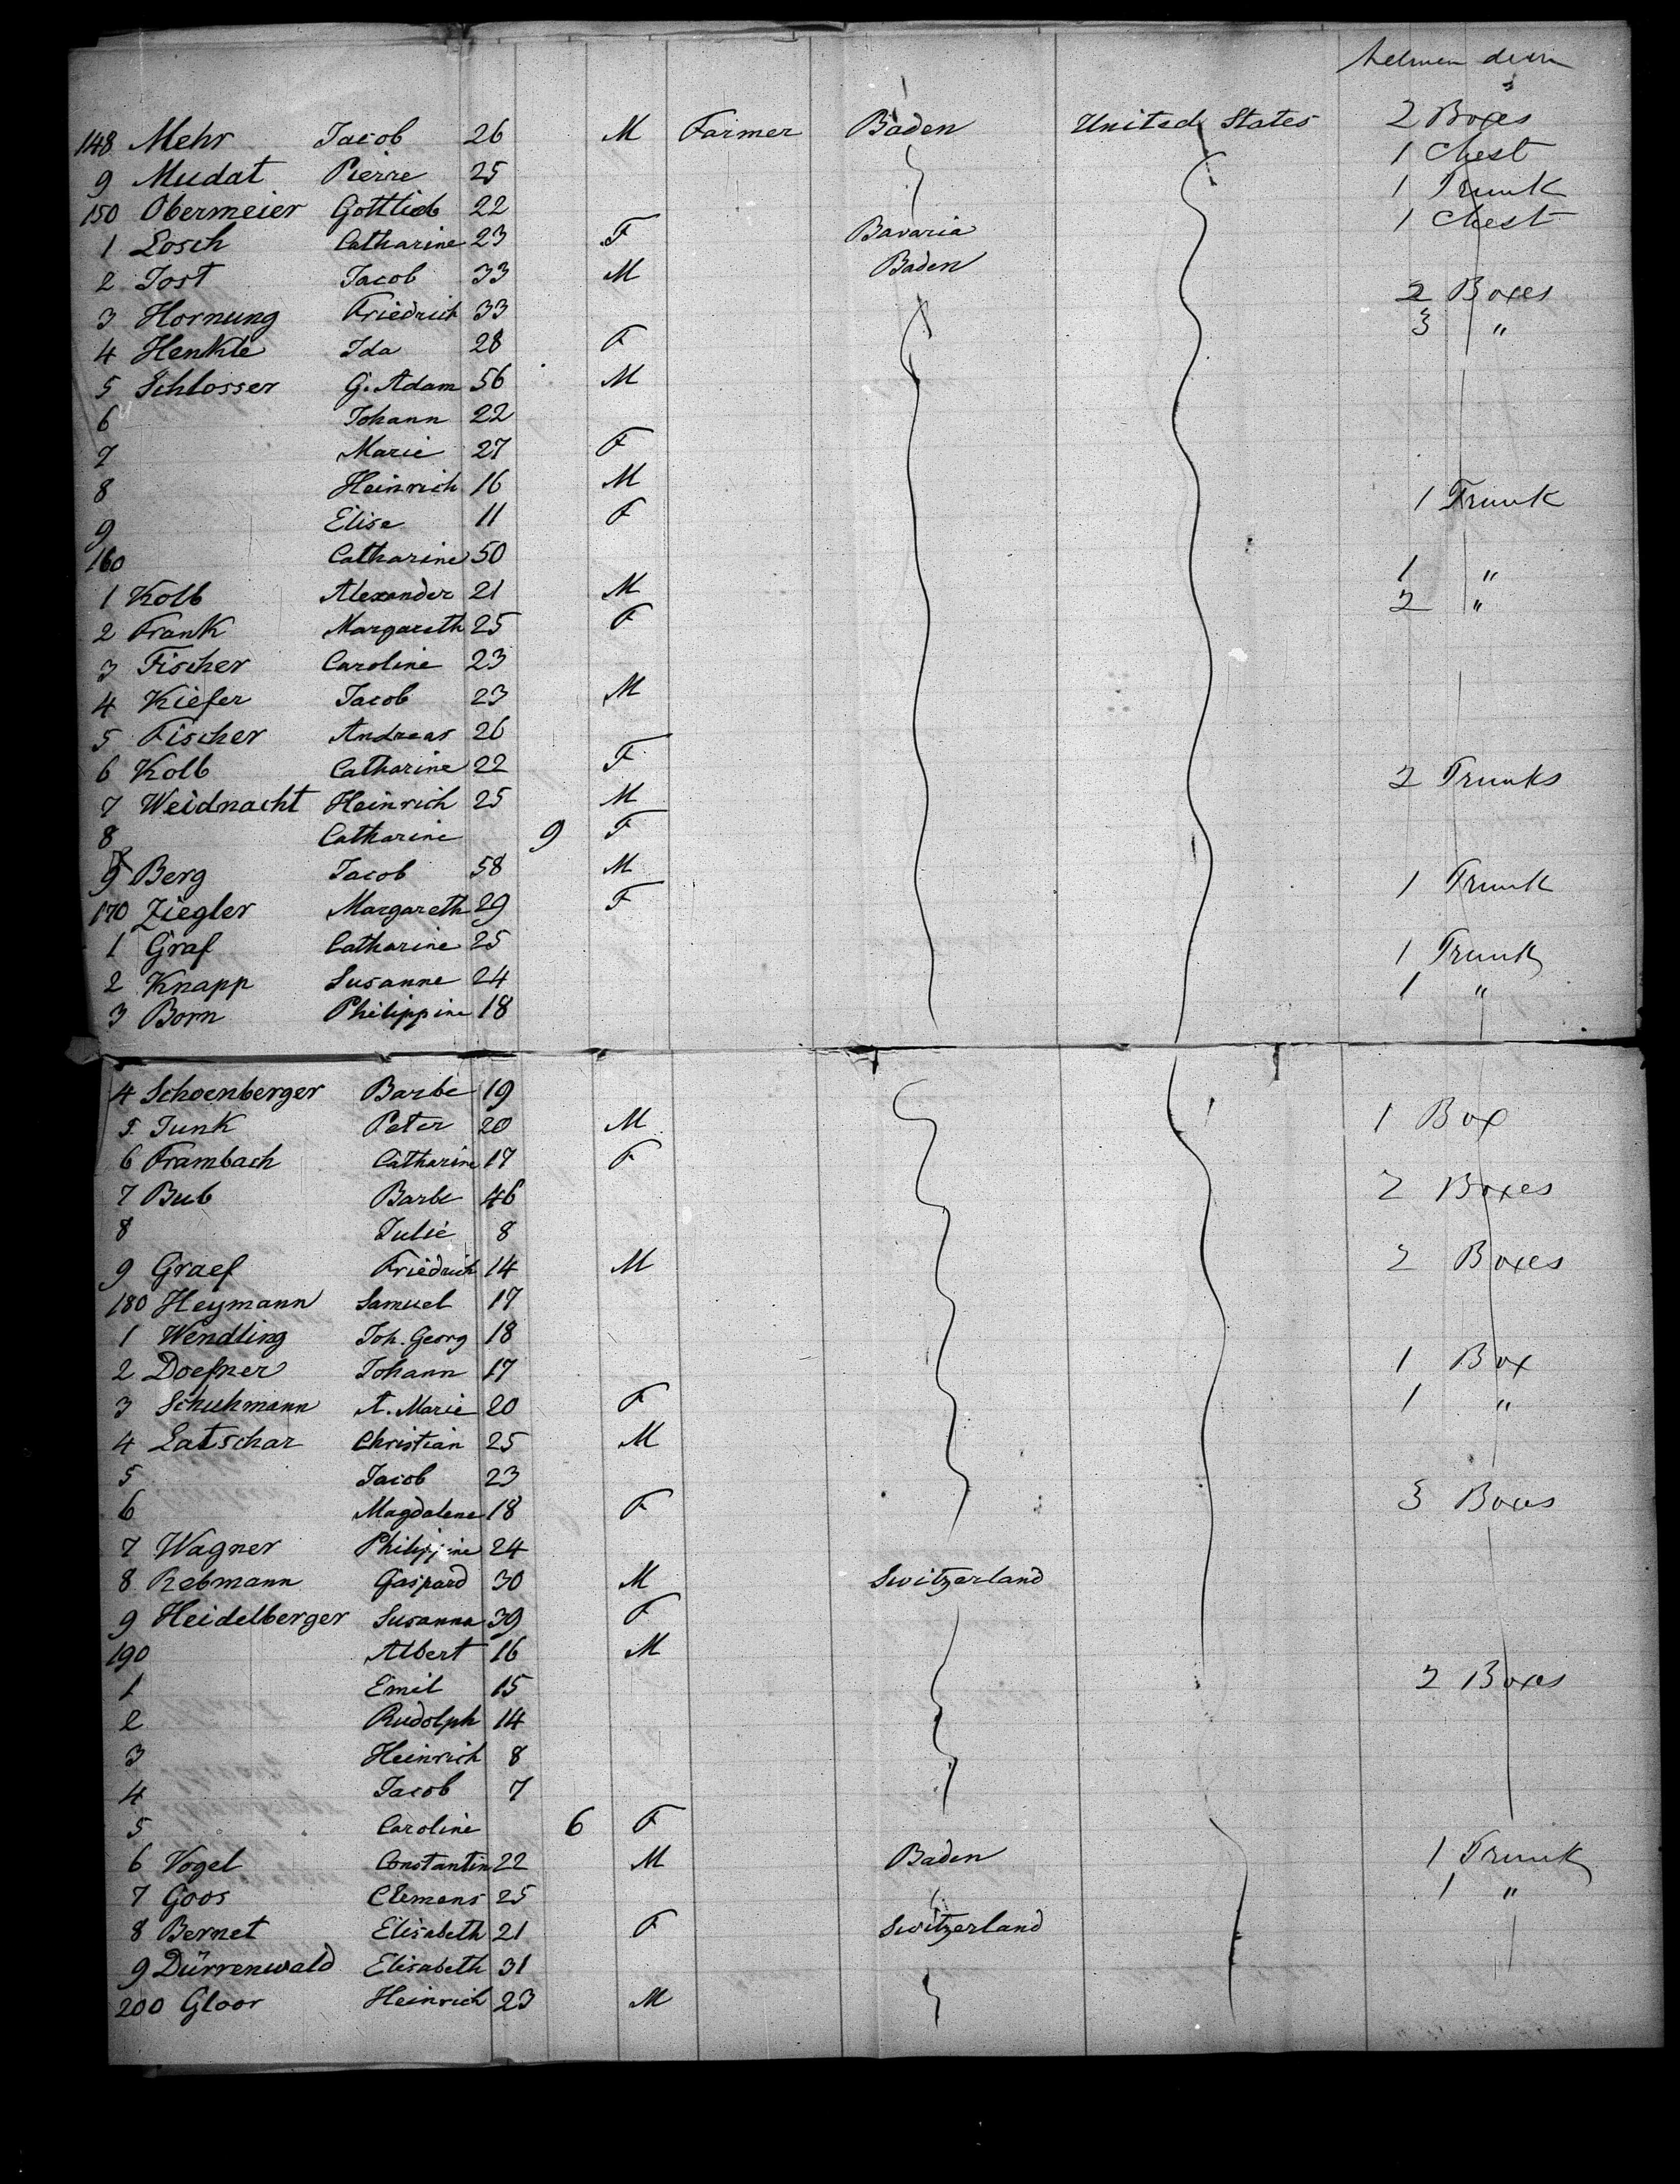 2 Boxes
148 Mehr Jacob 26 M Farmer Baden United States
1 Chest
9 Mudat Pierre 25
1 Trunk
150 Obermeier Gottlieb 22
1 Chest
1 Losch Catharine 23 F Bavaria
2 Jost Jacob 33 M Baden
2 Boxes
3 Hornung Friedrich 33
3 "
4 Henkle Ida 28 F
5 Schlosser G. Adam 56 M
6 Johann 22
7 Marie 27 F
8 Heinrich 16 M
1 Trunk
9 Elise 11 F
160 Catharine 50
1 "
1 Kolb Alexander 21 M
2 "
2 Frank Margareth 25 F
3 Fischer Caroline 23
4 Kiefer Jacob 23 M
5 Fischer Andreas 26
6 Kolb Catharine 22 F
2 Trunks
7 Weidnacht Heinrich 25 M
8 Catharine 9 F
9 Berg Jacob 58 M
1 Trunk
170 Ziegler Margareth 29 F
1 Graf Catharine 25
1 Trunk
2 Knapp Susanne 24
1 "
3 Born Philippine 18
4 Schoenberger Barbe 19
5 Junk Peter 20 M 1 Box
6 Frambach Catharine 17 F
7 Bub Barbe 46 2 Boxes
8 Julie 8
9 Graef Friedrich 14 M 2 Boxes
180 Heymann Samuel 17
1 Wendling Joh. Georg 18
2 Doefner Johann 17 1 Box
3 Schuhmann A. Marie 20 F 1 "
4 Latschar Christian 25 M
5 Jacob 23
6 Magdalena 18 F 3 Boxes
7 Wagner Philippine 24
8 Rebmann Gaspard 30 M Switzerland
9 Heidelberger Susanna 39 F
190 Albert 16 M
1 Emil 15 2 Boxes
2 Rudolph 14
3 Heinrich 8
4 Jacob 7
5 Caroline 6 F
6 Vogel Constantin 22 M Baden 1 Trunk
7 Goos Clemens 25 1 "
8 Bernet Elisabeth 21 F Switzerland
9 Dürrenwald Elisabeth 31
200 Gloor Heinrich 23 M